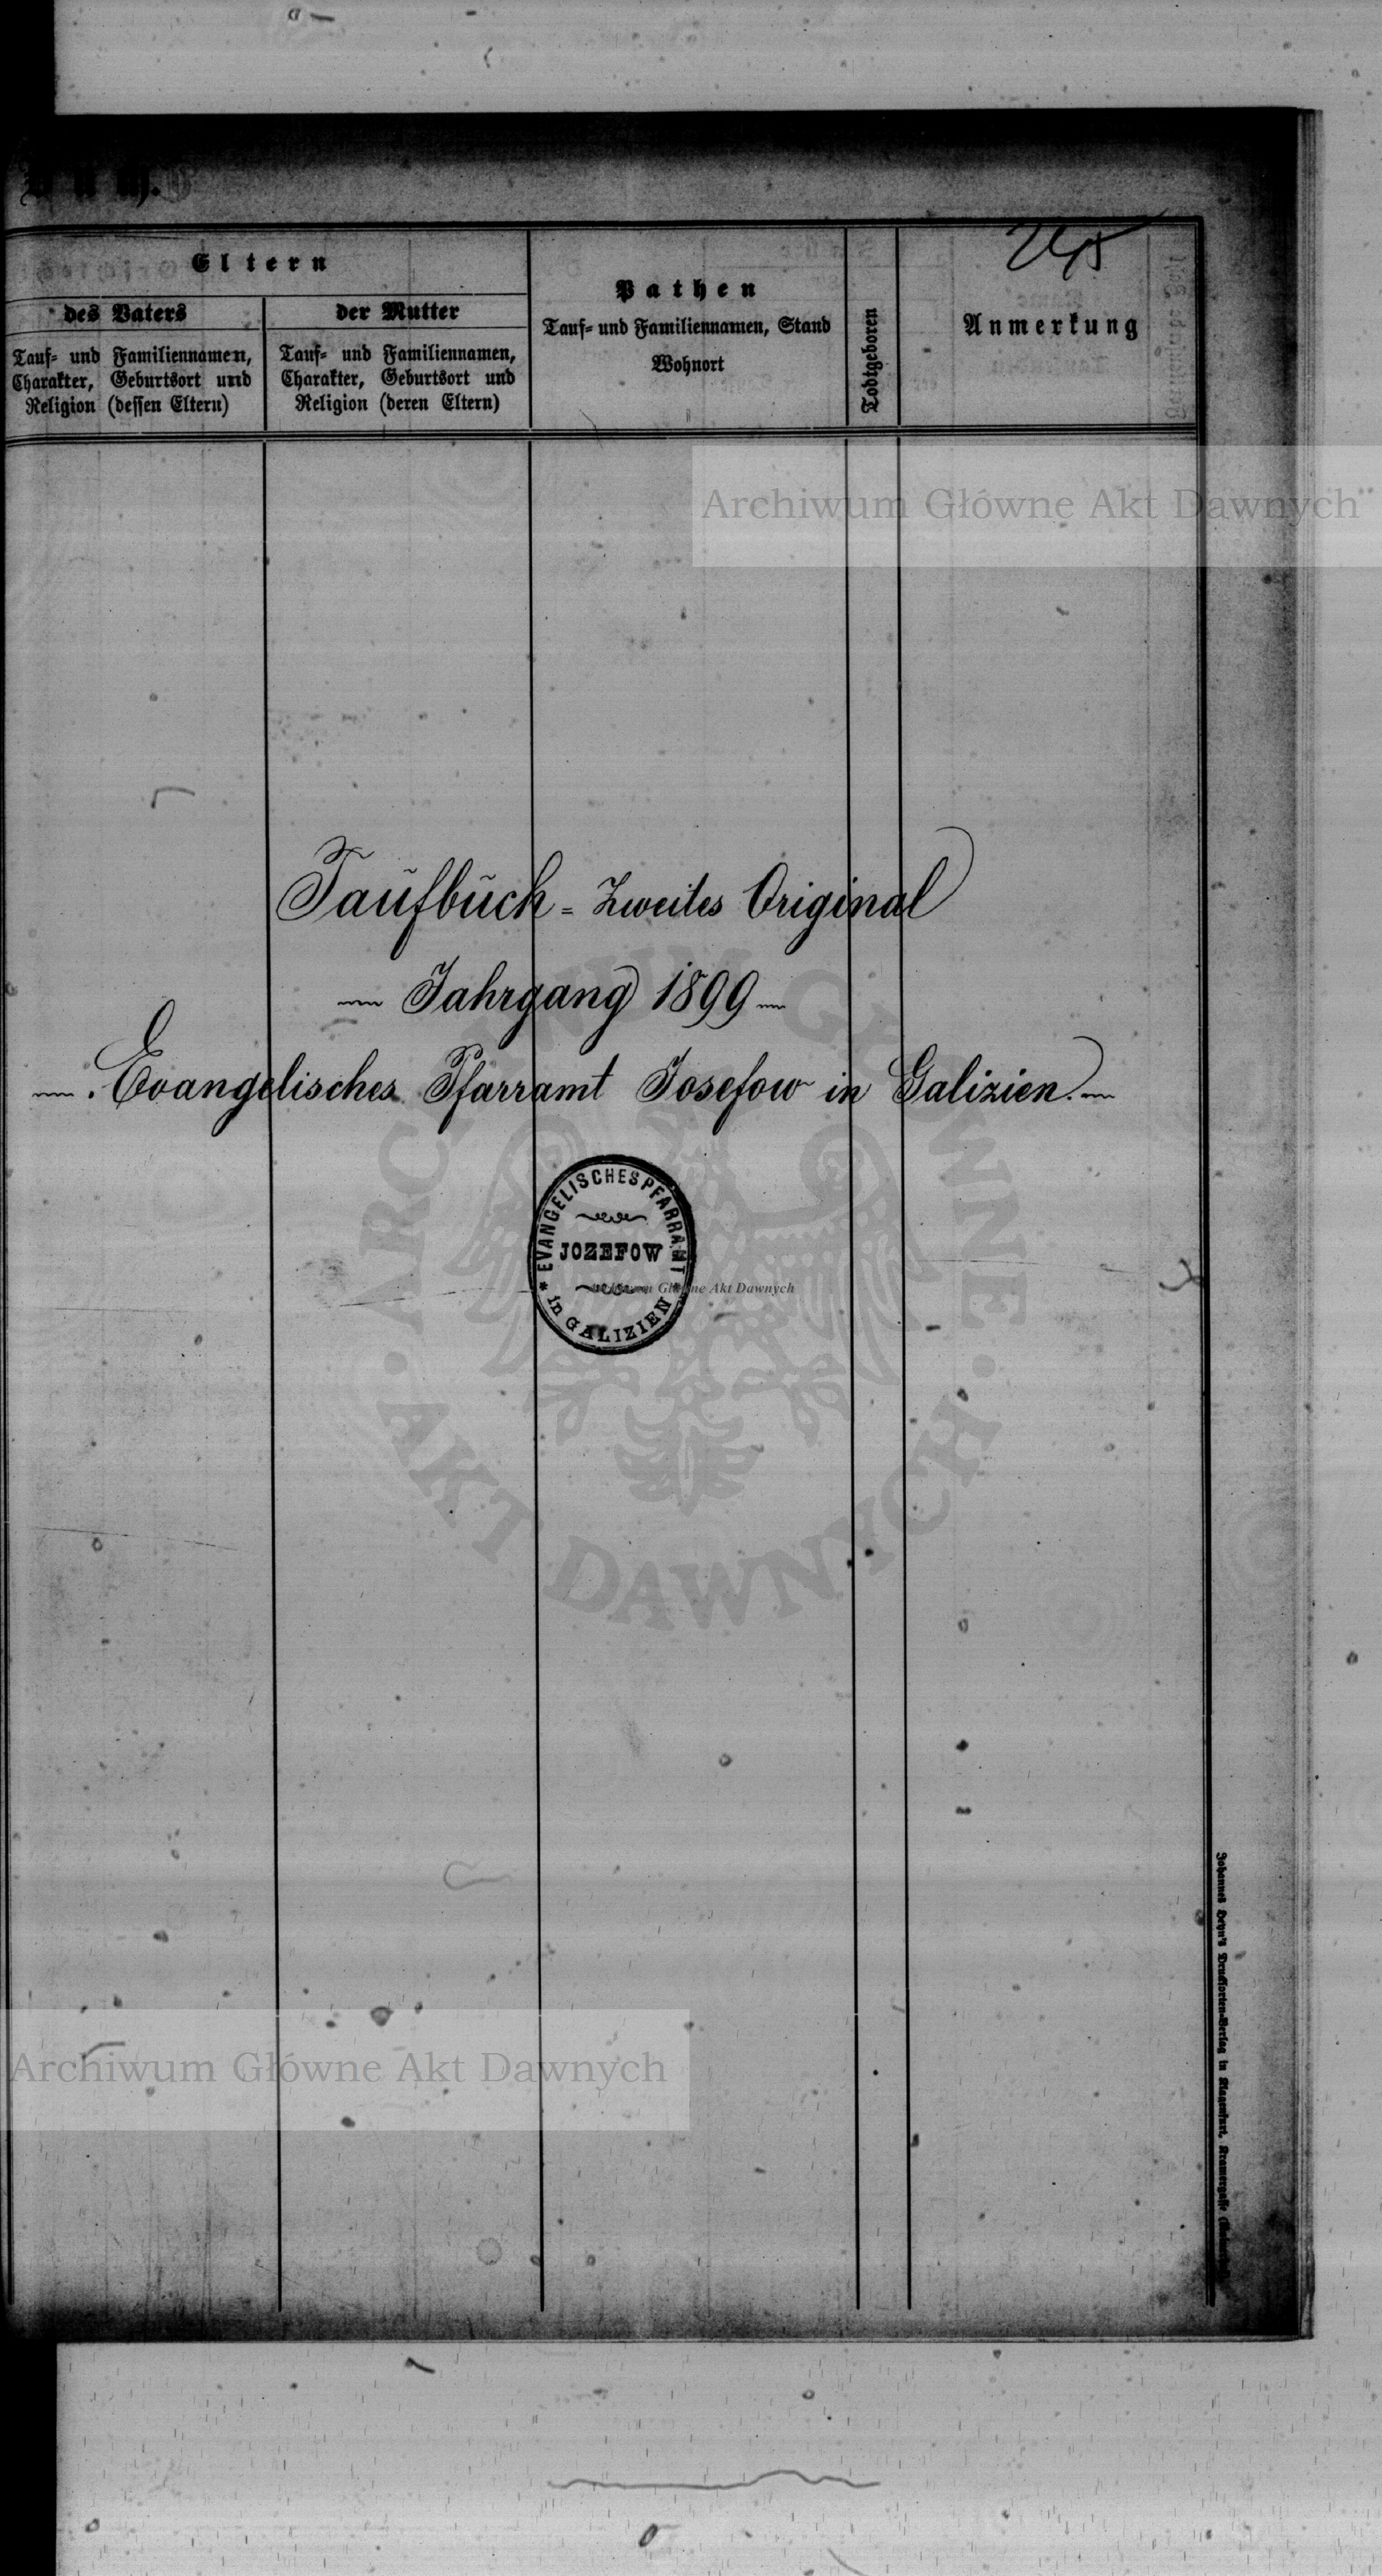 Buch.
Eltern
des Vaters
Tauf- und Familiennamen,
Charakter, Geburtsort und
Religion (dessen Eltern)
der Mutter
Tauf- und Familiennamen,
Charakter, Geburtsort und
Religion (deren Eltern)
Pathen
Tauf- und Familiennamen, Stand
Wohnort
Todtgeboren
Anmerkung
Archiwum Główne Akt Dawnych
Taufbuch = Zweites Original
Jahrgang 1899
Evangelisches Pfarramt Josefow in Galizien.
EVANGELISCHES PFARRAMT
JOZEFOW
in GALIZIEN
Archiwum Główne Akt Dawnych
ARCHIWUM GŁÓWNE
AKT DAWNYCH
Johannes Heyn's Drucksorten-Verlag in Klagenfurt, Kramergasse
Archiwum Główne Akt Dawnych